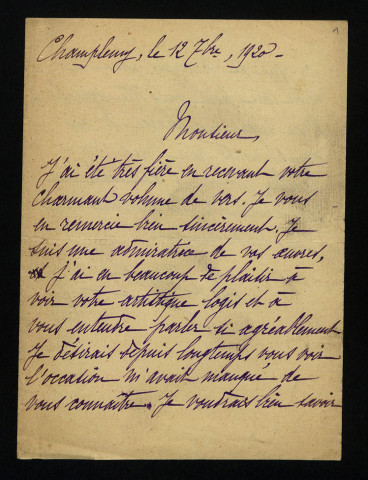 1
Champlemy, le 12 7bre, 1920 -
Monsieur,
J'ai été très fière en recevant votre
charmant volume de vers. Je vous
en remercie bien sincèrement. Je
suis une admiratrice de vos œuvres,
et j'ai eu beaucoup de plaisir à
voir votre artistique logis et à
vous entendre parler si agréablement
Je désirais depuis longtemps vous voir
l'occasion m'avait manqué de
vous connaître. Je voudrais bien savoir